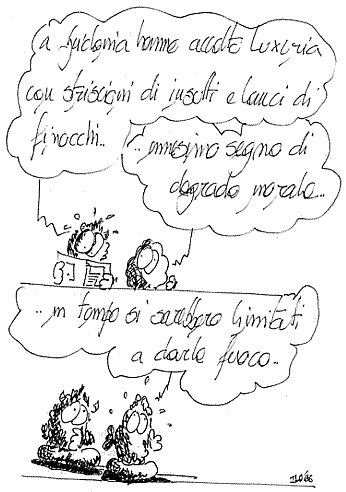 a fidenia hanno accolto Luxuria
con striscioni di insulti e lanci di
finocchi..
..ennesimo segno di
degrado morale...
..un tempo si sarebbero limitati
a darle fuoco..